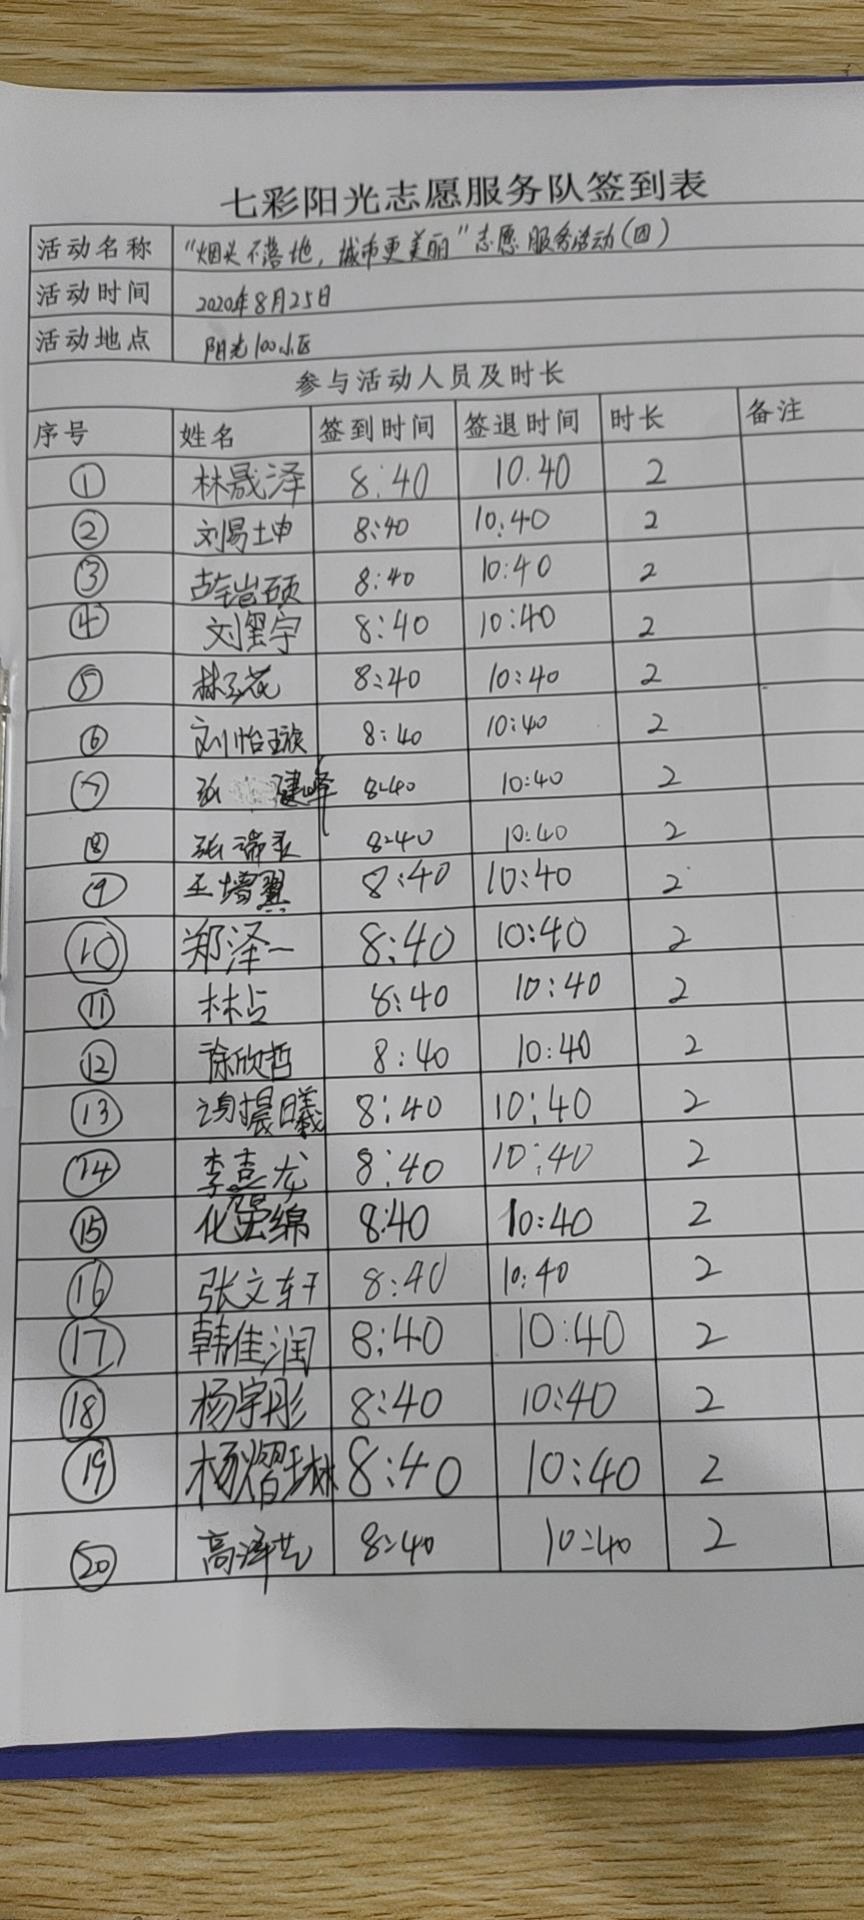 七彩阳光志愿服务队签到表
活动名称 “烟头不落地，城市更美丽”志愿服务活动(四)
活动时间 2020年8月25日
活动地点 阳光100小区
参与活动人员及时长
序号 姓名 签到时间 签退时间 时长 备注
① 林晟泽 8:40 10.40 2
② 刘易坤 8:40 10:40 2
③ 8:40 10:40 2
④ 刘罡宇 8:40 10:40 2
⑤ 8:40 10:40 2
⑥ 刘怡璇 8:40 10:40 2
⑦ 张建峰 8:40 10:40 2
⑧ 张瑞灵 8:40 10:40 2
⑨ 王增翼 8:40 10:40 2
⑩ 郑泽一 8:40 10:40 2
⑪ 林占 8:40 10:40 2
⑫ 徐欣哲 8:40 10:40 2
⑬ 8:40 10:40 2
⑭ 李嘉龙 8:40 10:40 2
⑮ 8:40 10:40 2
⑯ 张文轩 8:40 10:40 2
⑰ 韩佳润 8:40 10:40 2
⑱ 杨宇彤 8:40 10:40 2
⑲ 杨熠琳 8:40 10:40 2
⑳ 高泽艺 8:40 10:40 2